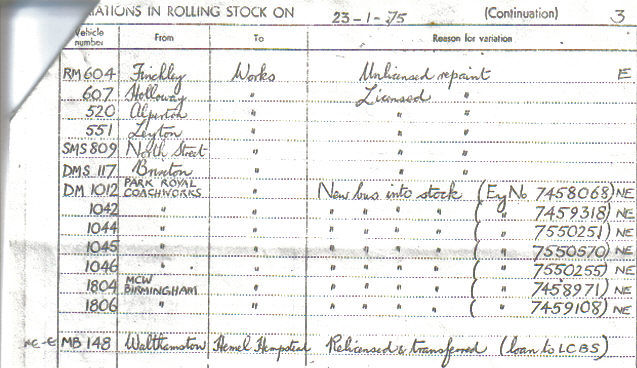 ATIONS IN ROLLING STOCK ON 23-1-75 (Continuation) 3
Vehicle number From To Reason for variation
RM 604 Finchley Works Unlicensed repaint E
607 Holloway " Licensed "
520 Alperton " " "
551 Leyton " " "
SMS 809 North Street " " "
DMS 117 Brixton " " "
DM 1012 PARK ROYAL COACHWORKS " New bus into stock (Eng No. 7458068) NE
1042 " " " " " " ( " 7459318) NE
1044 " " " " " " ( " 7550251) NE
1045 " " " " " " ( " 7550570) NE
1046 " " " " " " ( " 7550255) NE
1804 MCW BIRMINGHAM " " " " " ( " 7458971) NE
1806 " " " " " " ( " 7459108) NE
NE-E MB 148 Walthamstow Hemel Hempstead Relicensed & transferred (loan to LCBS)